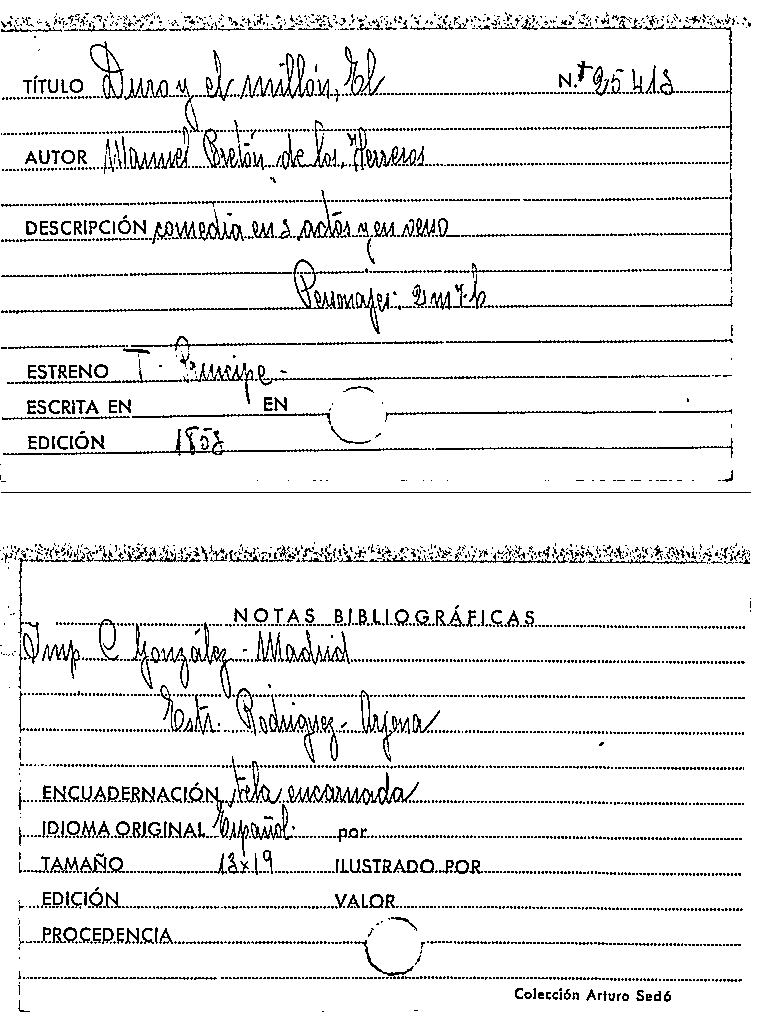 TÍTULO Duro y el millón, El N.º 25413
AUTOR Manuel Bretón de los Herreros
DESCRIPCIÓN comedia en 3 actos y en verso
Personajes: 2 m 7 h
ESTRENO T. Principe -
ESCRITA EN EN
EDICIÓN 1853
NOTAS BIBLIOGRÁFICAS
Imp C González - Madrid
Estr. Rodriguez - Arjona
ENCUADERNACIÓN tela encarnada
IDIOMA ORIGINAL Español. por
TAMAÑO 13x19 ILUSTRADO POR
EDICIÓN VALOR
PROCEDENCIA
Colección Arturo Sedó